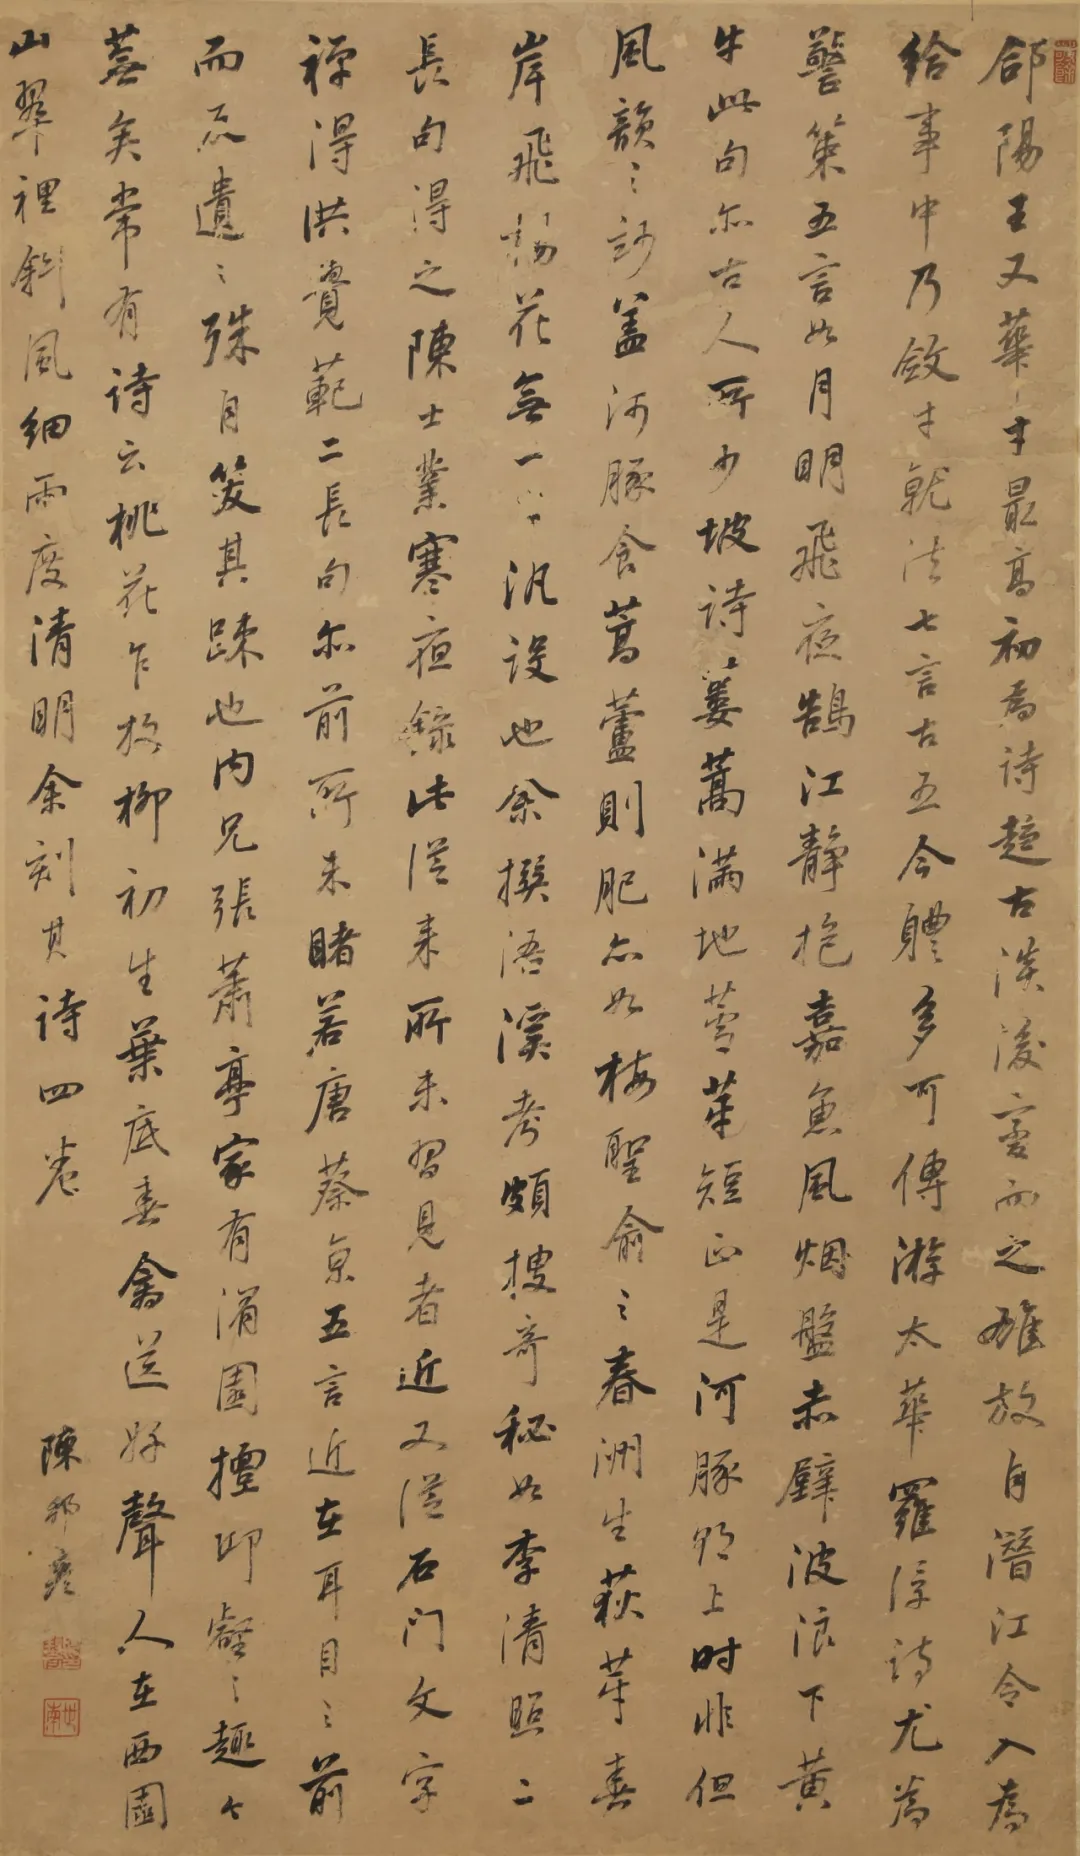 郃陽王又華才最高初為詩趍古淡後變而之雄放自潛江令入為
給事中乃斂才就法七言古五今體多可傳游太華羅浮詩尤為
警策五言如月明飛夜鵠江靜抱嘉魚風烟盤赤壁波浪下黃
牛此句亦古人所少坡詩蔞蒿滿地蘆芽短正是河豚欲上時非但
風韻之妙盖河豚食蒿蘆則肥亦如梅聖俞之春洲生荻芽春
岸飛楊花無一字汎設也余撰浯溪考頗搜奇秘如李清照二
長句得之陳士業寒夜錄此從来所未習見者近又從石門文字
禪得洪覺範二長句亦前所未睹若唐蔡京五言近在耳目之前
而反遺之殊自笑其踈也內兄張蕭亭家有涓園擅邱壑之趣今
蕪矣常有詩云桃花乍放柳初生葉底春禽送好聲人在西園
山翠裡斜風細雨度清明余刻其詩四卷
陳邦彦